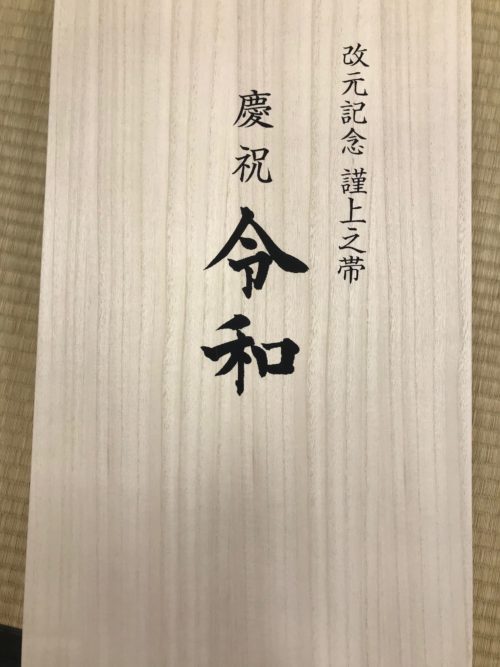 改元記念 謹上之帯
慶祝 令和